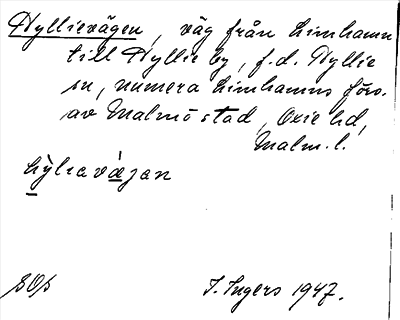 Hyllievägen, väg från Limhamn
till Hyllie by, f.d. Hyllie
sn, numera Limhamns förs.
av Malmö stad, Oxie hd,
Malm. l.
I. Ingers 1947.